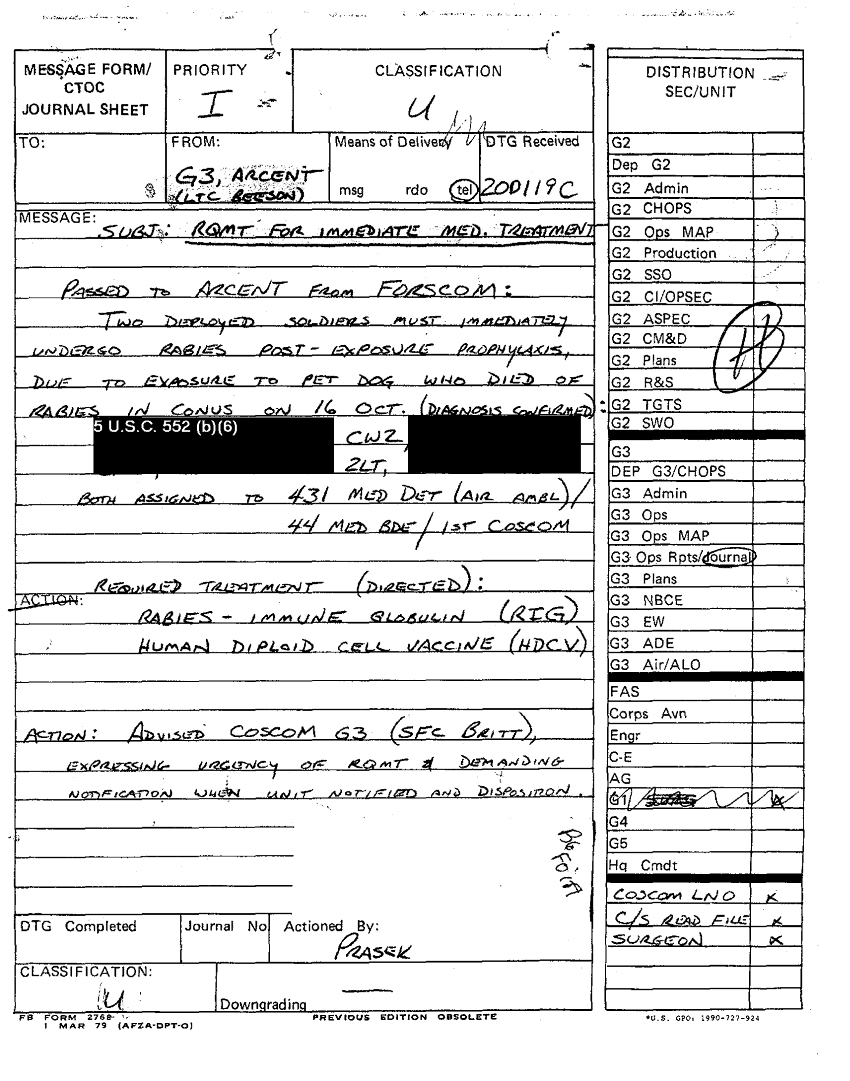 MESSAGE FORM/
CTOC
JOURNAL SHEET
PRIORITY
I
CLASSIFICATION
U
TO:
FROM:
G3, ARCENT
(LTC BEESON)
Means of Delivery
msg rdo tel
DTG Received
200119C
MESSAGE:
SUBJ: RQMT FOR IMMEDIATE MED. TREATMENT
PASSED TO ARCENT FROM FORSCOM:
TWO DEPLOYED SOLDIERS MUST IMMEDIATELY
UNDERGO RABIES POST-EXPOSURE PROPHYLAXIS,
DUE TO EXPOSURE TO PET DOG WHO DIED OF
RABIES IN CONUS ON 16 OCT. (DIAGNOSIS CONFIRMED):
5 U.S.C. 552 (b)(6)
CW2,
2LT,
BOTH ASSIGNED TO 431 MED DET (AIR AMBL)/
44 MED BDE/1ST COSCOM
REQUIRED TREATMENT (DIRECTED):
ACTION:
RABIES-IMMUNE GLOBULIN (RIG)
HUMAN DIPLOID CELL VACCINE (HDCV)
ACTION: ADVISED COSCOM G3 (SFC BRITT),
EXPRESSING URGENCY OF RQMT & DEMANDING
NOTIFICATION WHEN UNIT NOTIFIED AND DISPOSITION.
DTG Completed
Journal No
Actioned By:
PRASEK
CLASSIFICATION:
U
Downgrading
FB FORM 2768
1 MAR 79 (AFZA-DPT-O)
PREVIOUS EDITION OBSOLETE
DISTRIBUTION
SEC/UNIT
G2
Dep G2
G2 Admin
G2 CHOPS
G2 Ops MAP
G2 Production
G2 SSO
G2 CI/OPSEC
G2 ASPEC
G2 CM&D
G2 Plans
G2 R&S
G2 TGTS
G2 SWO
G3
DEP G3/CHOPS
G3 Admin
G3 Ops
G3 Ops MAP
G3 Ops Rpts/Journal
G3 Plans
G3 NBCE
G3 EW
G3 ADE
G3 Air/ALO
FAS
Corps Avn
Engr
C-E
AG
G1
G4
G5
Hq Cmdt
COSCOM LNO X
C/S READ FILE X
SURGEON X
*U.S. GPO: 1990-727-924